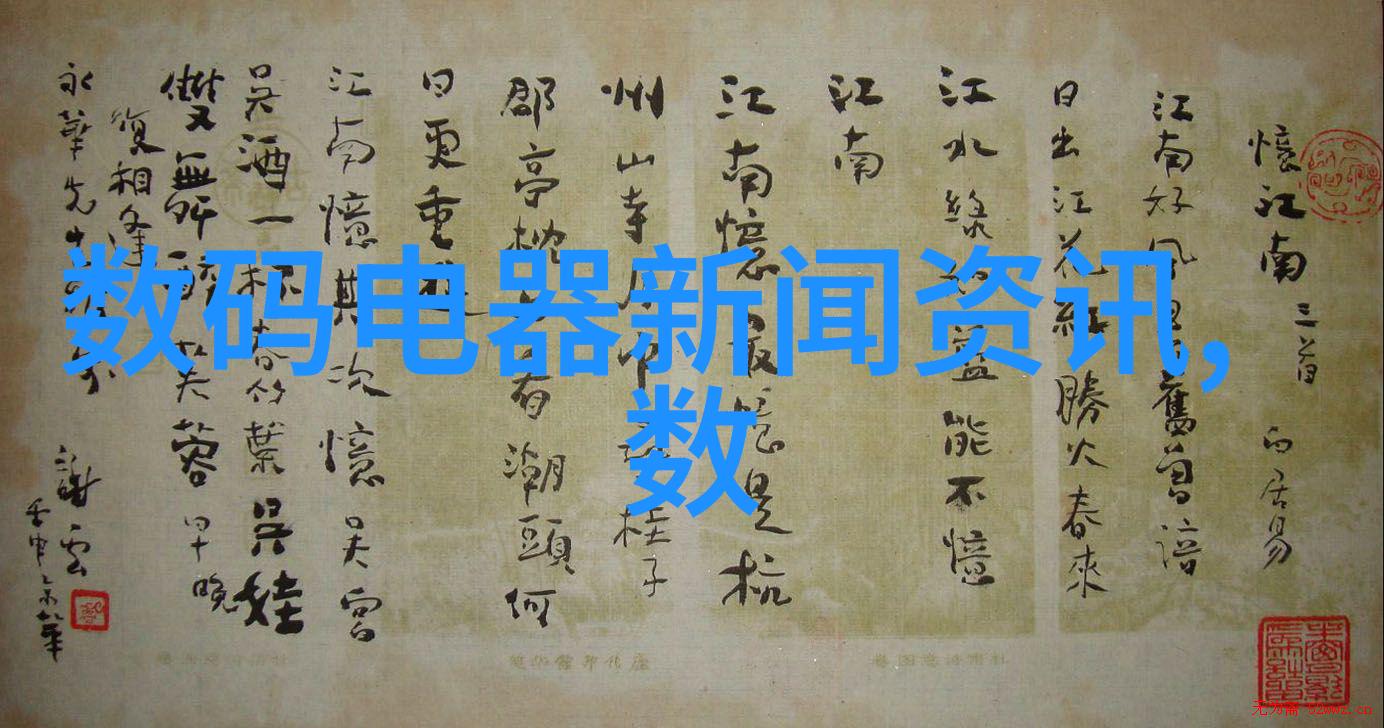 憶江南 三首 白居易
江南好風景舊曾諳
日出江花紅勝火春來
江水綠如藍能不憶
江南
江南憶最憶是杭
州山寺月中尋桂子
郡亭枕上看潮頭何
日更重遊
江南憶其次憶吳宮
吳酒一杯春竹葉吳娃
雙舞醉芙蓉早晚
復相逢
永華先生
謝雲
数码电器新闻资讯,
数